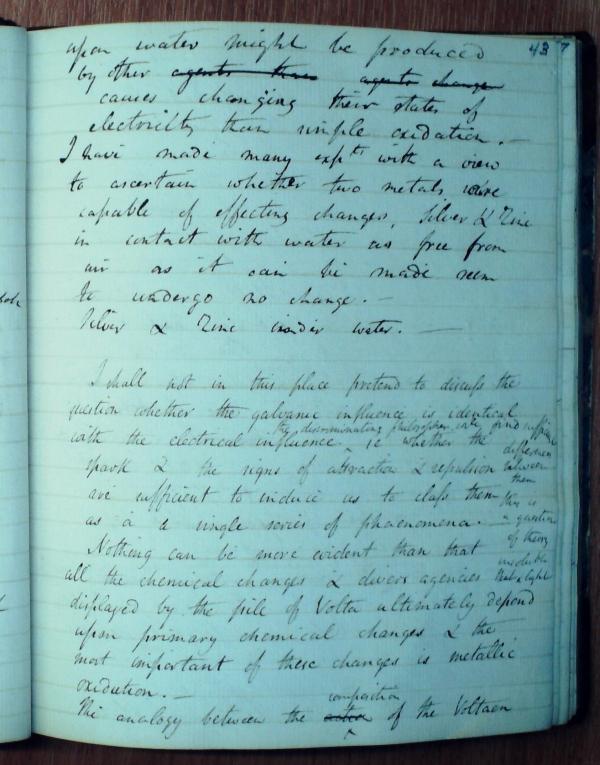 43 7
upon water might be produced
by other agents than agents change
causes changing their states of
electricity than simple oxidation. -
I have made many exp.ts with a view
to ascertain whether two metals were
capable of effecting changes, Silver & Zinc
in contact with water as free from
air as it can be made seem
to undergo no change. -
Silver & Zinc under water. -
I shall not in this place pretend to discuss the
question whether the galvanic influence is identical
the discriminating philosopher will find sufficient
with the electrical influence ie whether the
differences
spark & the signs of attraction & repulsion
between
them
are sufficient to induce us to class them
this is
as a single series of phaenomena.
a question
of theory
Nothing can be more evident than that
insoluble
all the chemical changes & divers agencies
that a light
displayed by the pile of Volta ultimately depend
upon primary chemical changes & the
most important of these changes is metallic
oxidation. -
composition
The analogy between the action of the Voltaen